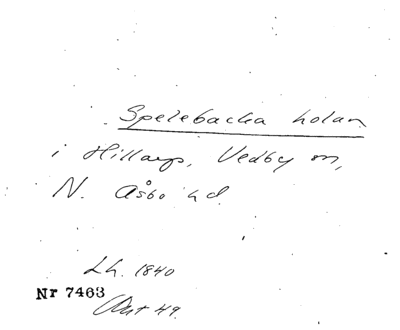 Spelebacka holan
i Hillarp, Vedby sn,
N. Åsbo hd
Lh. 1840
Nr 7463
Ant 49.